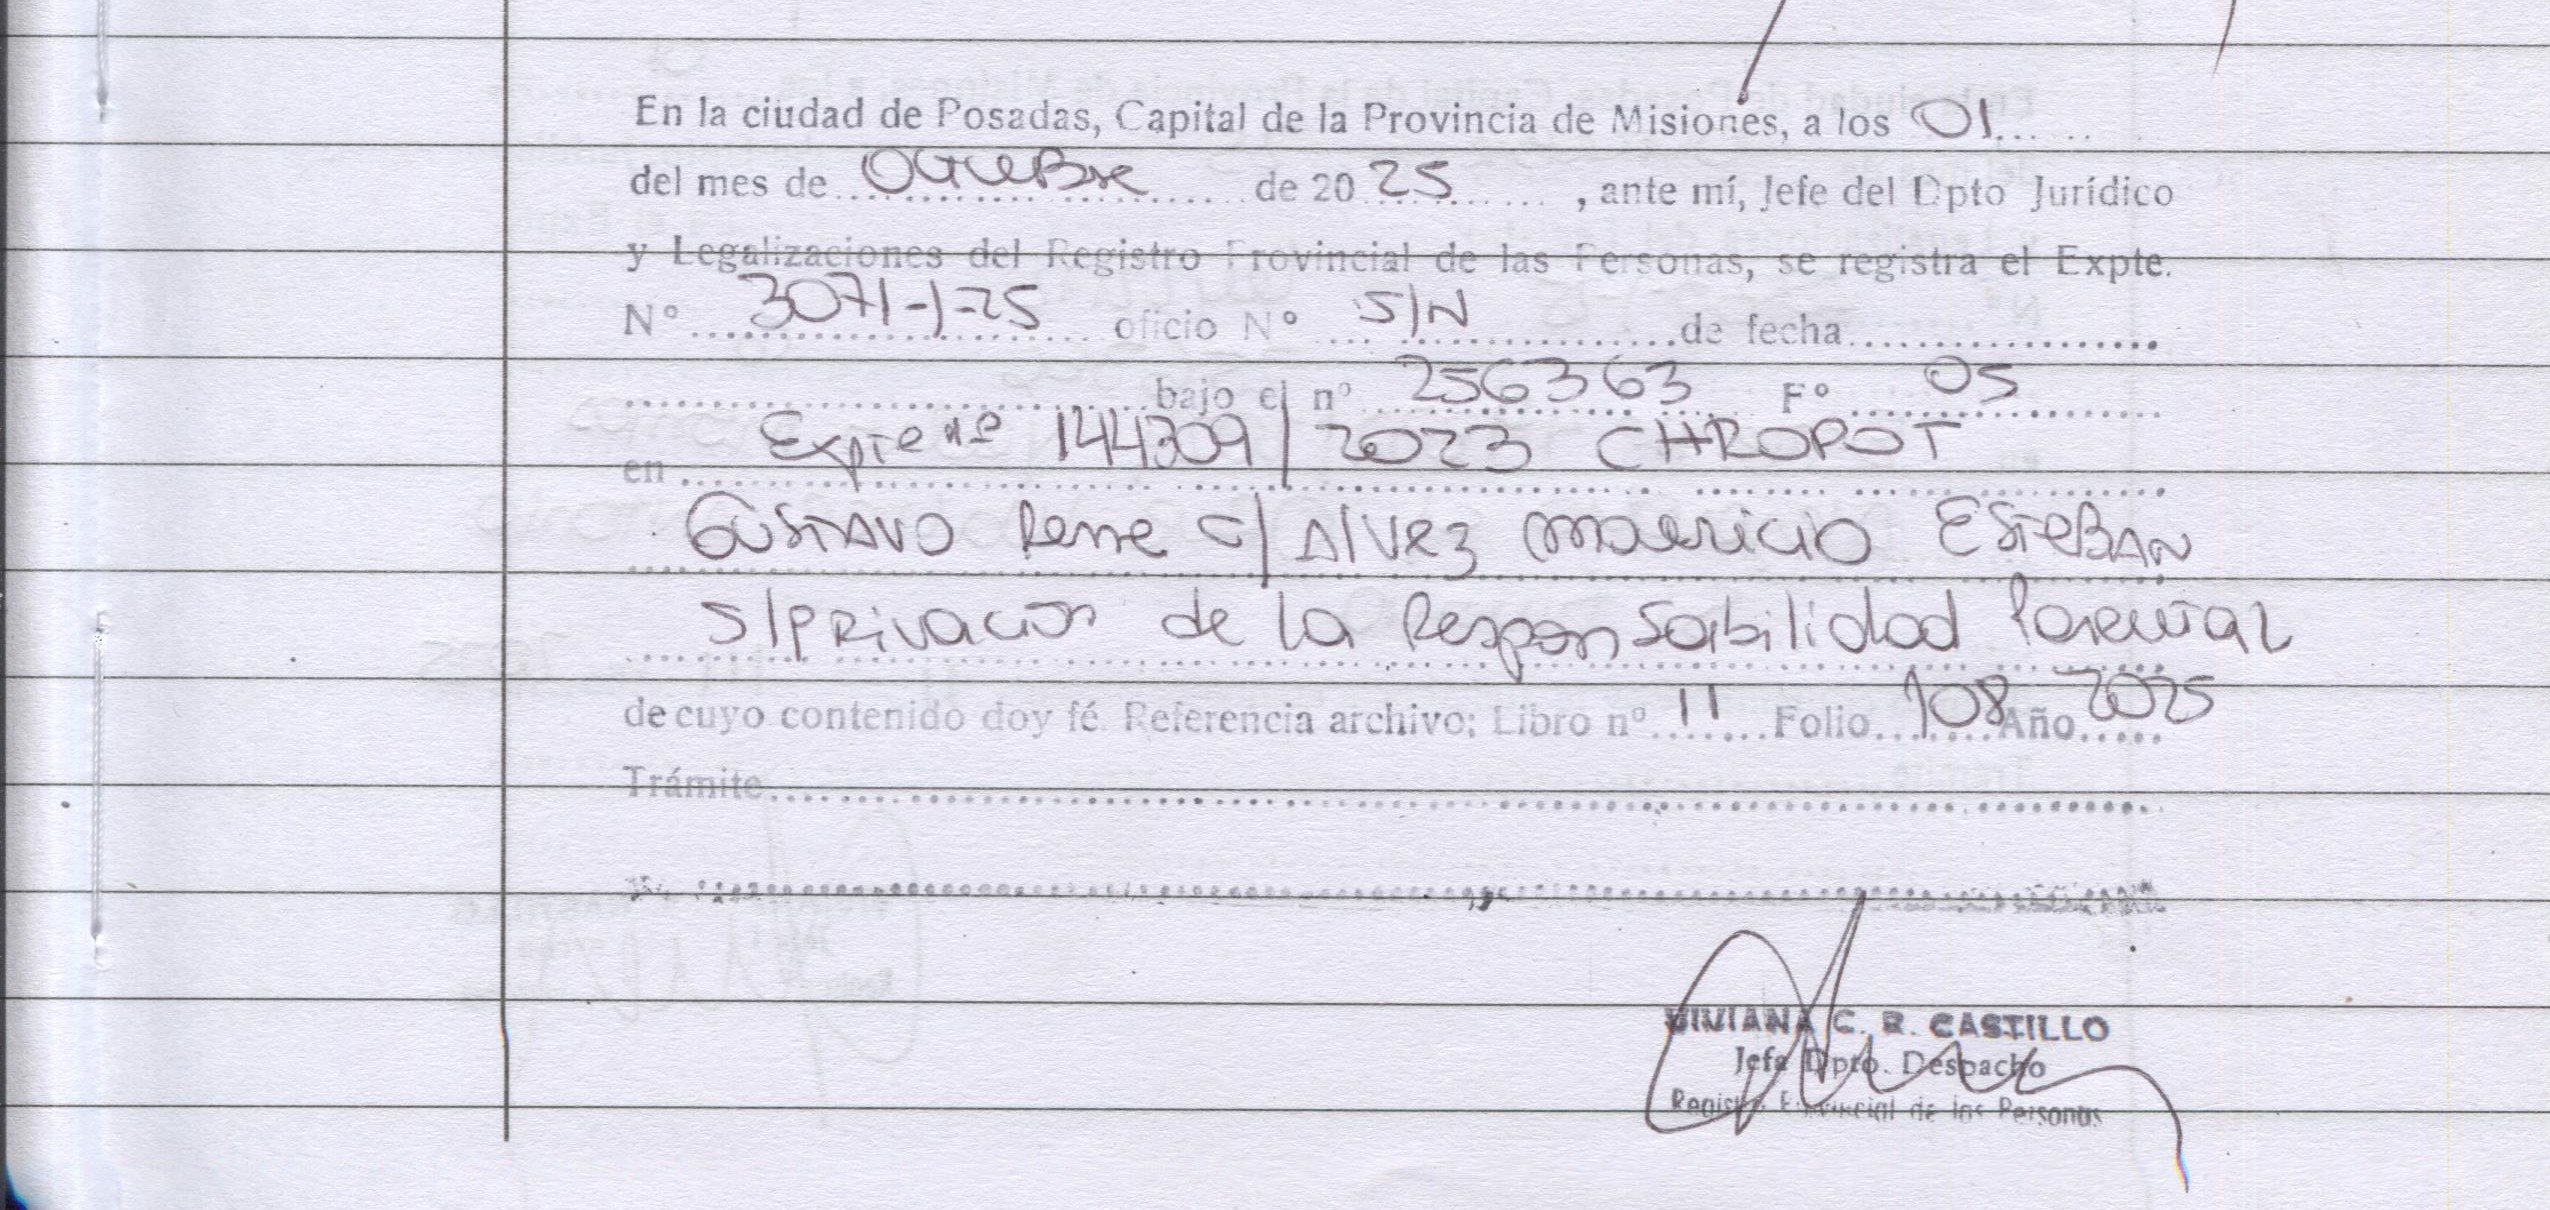 En la ciudad de Posadas, Capital de la Provincia de Misiones, a los 01......
del mes de Octubre de 2025, ante mí, Jefe del Dpto Jurídico
y Legalizaciones del Registro Provincial de las Personas, se registra el Expte.
Nº 3071-J-25 oficio Nº S/N de fecha..................
..............................bajo el nº 256363 Fº 05
en Expte nº 144309/2023 CHROPOT
Gustavo Rene c/ Alvez Mauricio Esteban
S/Privacion de la Responsabilidad Parental
de cuyo contenido doy fé. Referencia archivo: Libro nº 11 Folio 108 Año 2025
Trámite..................................................
VIVIANA C. R. CASTILLO
Jefa Dpto. Despacho
Registro Provincial de las Personas